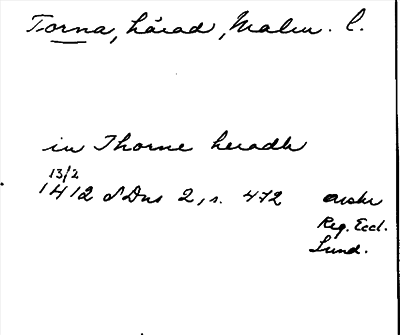 Torna, härad, Malm. l.
in Thorne heradh
13/2
1412 SDns 2, s. 472 avskr
Reg. Eccl.
Lund.